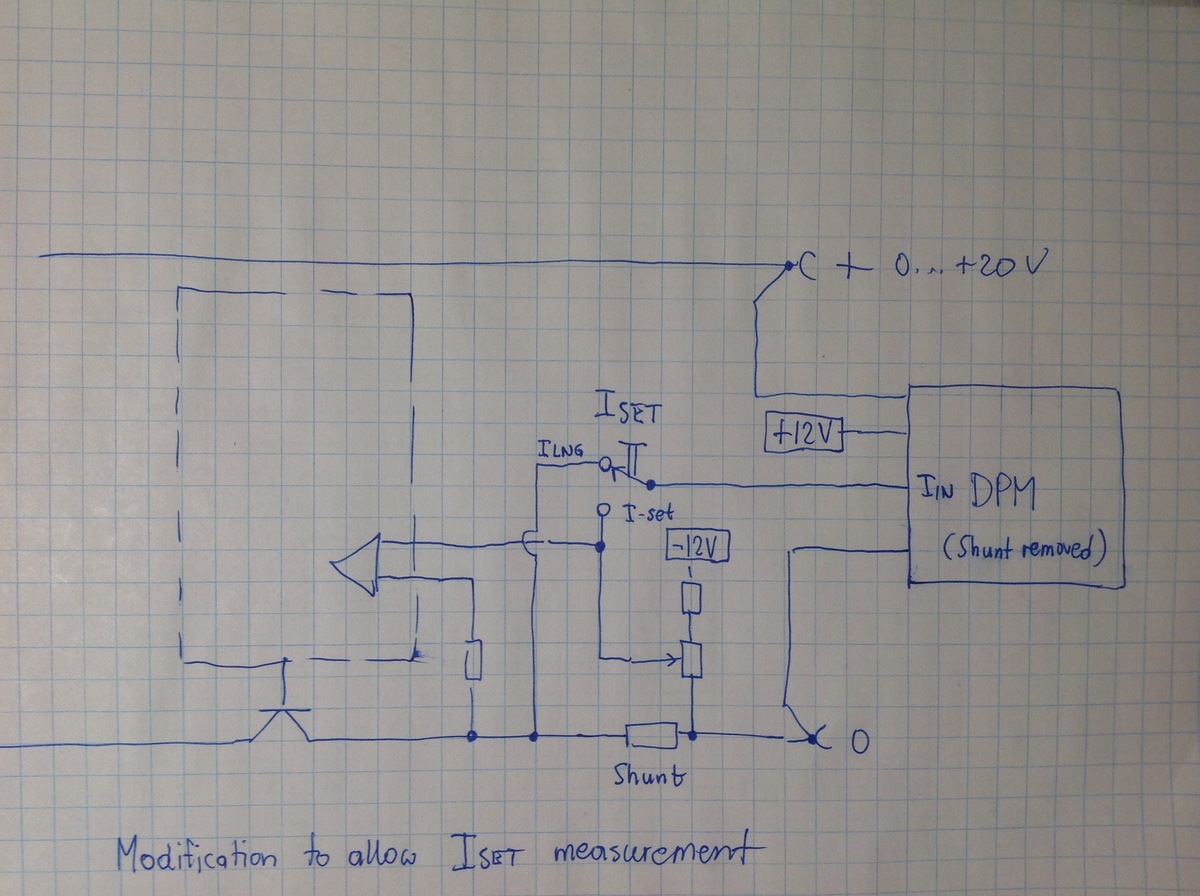 + 0... +20V
ISET
ILNG
+12V
IIN DPM
I-set
-12V
(Shunt removed)
0
Shunt
Modification to allow ISET measurement